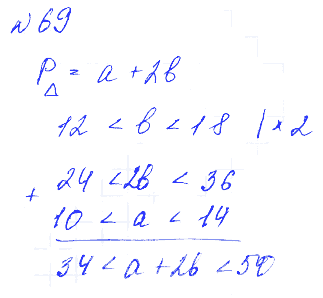 №69
P△ = a + 2b
12 < b < 18 | × 2
24 < 2b < 36
+
10 < a < 14
34 < a + 2b < 50